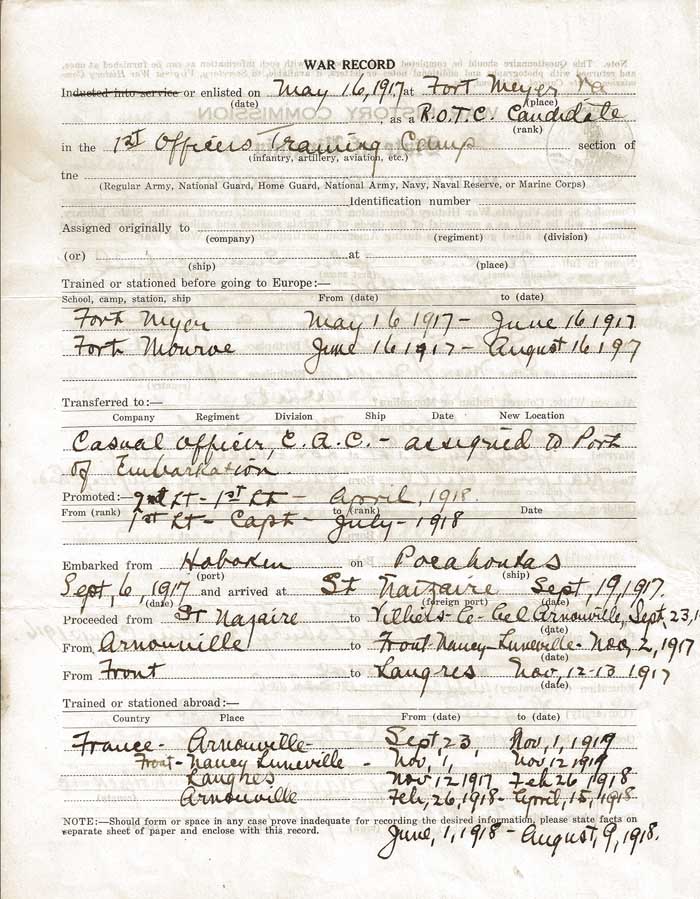 WAR RECORD
Inducted into service or enlisted on May 16, 1917 at Fort Meyer Va
(date) (place)
, as a R.O.T.C. Candidate
(rank)
in the 1st Officers Training Camp section of
(infantry, artillery, aviation, etc.)
the
(Regular Army, National Guard, Home Guard, National Army, Navy, Naval Reserve, or Marine Corps)
Identification number
Assigned originally to
(company) (regiment) (division)
(or) at
(ship) (place)
Trained or stationed before going to Europe:—
School, camp, station, ship From (date) to (date)
Fort Myer May 16 1917 - June 16 1917
Fort Monroe June 16 1917 - August 16 197
Transferred to:—
Company Regiment Division Ship Date New Location
Casual Officer, C.A.C. - assigned to Port
of Embarkation.
Promoted:— 2nd Lt - 1st Lt - April, 1918.
From (rank) to (rank) Date
1st Lt - Capt - July - 1918
Embarked from Hoboken on Pocahontas
(port) (ship)
Sept, 6, 1917 and arrived at St Naizaire Sept, 19, 1917.
(date) (foreign port) (date)
Proceeded from St Nazaire to Arnouville, Sept, 23, 1
(date)
From Arnouville to Front-Nancy-Luneville - Nov, 2, 1917
(date)
From Front to Langres Nov, 12-13 1917
(date)
Trained or stationed abroad:—
Country Place From (date) to (date)
France - Arnouville - Sept, 23, Nov, 1, 1917
Front - Nancy Luneville - Nov, 1, Nov 12 1917
Langres Nov 12 1917 Feb 26, 1918
Arnouville Feb, 26, 1918 - April, 15, 1918
NOTE:—Should form or space in any case prove inadequate for recording the desired information, please state facts on
separate sheet of paper and enclose with this record.
June, 1, 1918 - August, 9, 1918.